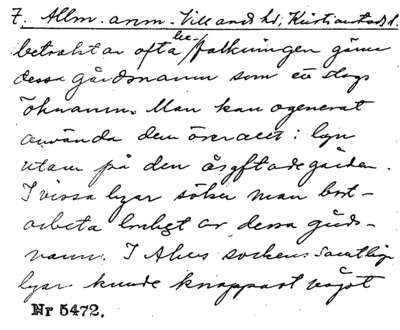 7. Allm. anm. Villands hd; Kristianstads l.
betraktar ofta be-
folkningen gärna
dessa gårdsnamn som ett slags
öknamn. Man kan ogenerat
använda dem överallt i byn
utom på den åsyftade gården.
I vissa byar söker man bort-
arbeta bruket av dessa gårds-
namn. I Ahus sockens samtliga
byar kunde knappast något
Nr 5472.